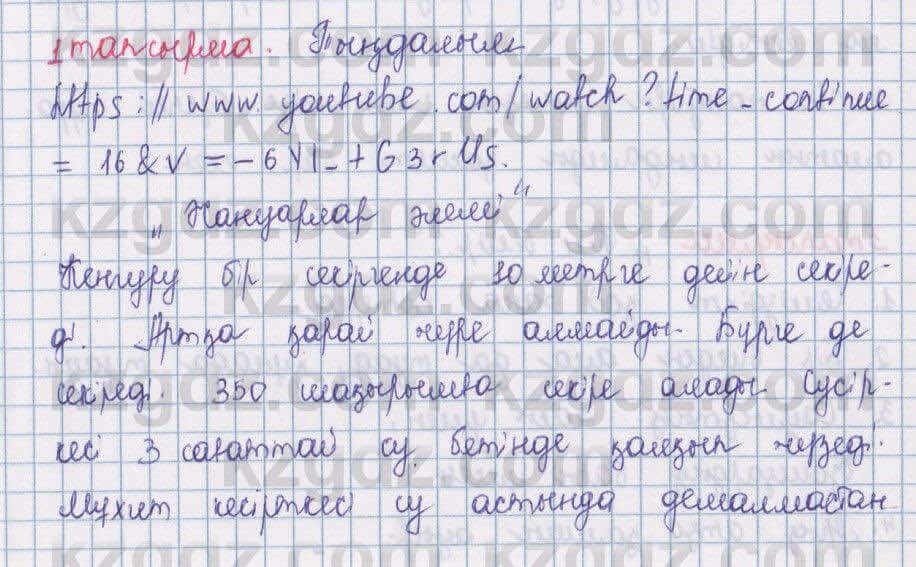 1 тапсырма. Тыңдалым
https://www.youtube.com/watch?time-continue
= 16&v=-6YI-+G3rUs.
„Жануарлар әлемі"
Кенгуру бір секіргенде 10 метрге дейін секіре-
ді. Артқа қарай жүре алмайды. Бүрге де
секіреді. 350 шақырымға секіре алады Су сір-
кесі 3 сағаттай су бетінде қалқып жүреді.
Мұхит кесірткесі су астында демалмастан
kzgdz.com